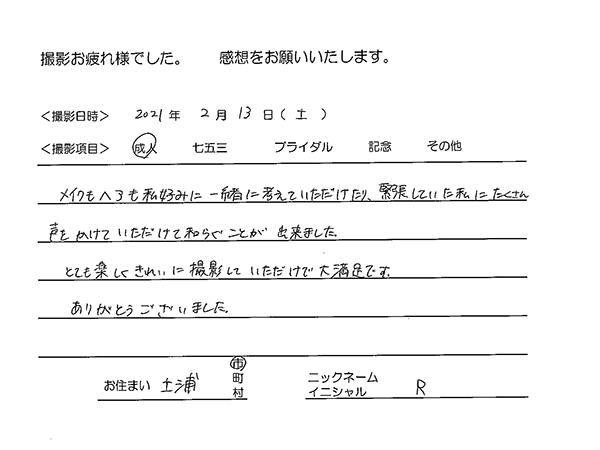 撮影お疲れ様でした。 感想をお願いいたします。
＜撮影日時＞ 2021年 2月 13日(土)
＜撮影項目＞ 成人 七五三 ブライダル 記念 その他
メイクもヘアも私好みに一緒に考えていただけたり、緊張していた私にたくさん
声をかけていただけて和らぐことが出来ました。
とても楽しくきれいに撮影していただけて大満足です。
ありがとうございました。
お住まい 土浦 市 町 村 ニックネーム イニシャル R